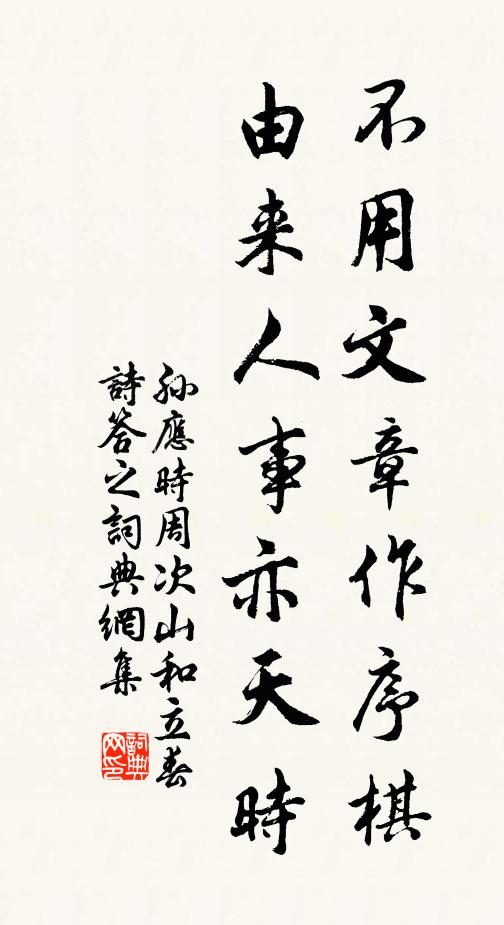 不用文章作序棋
由来人事亦天時
孫應時周次山和立春
詩答之詞典網集
詞典网印